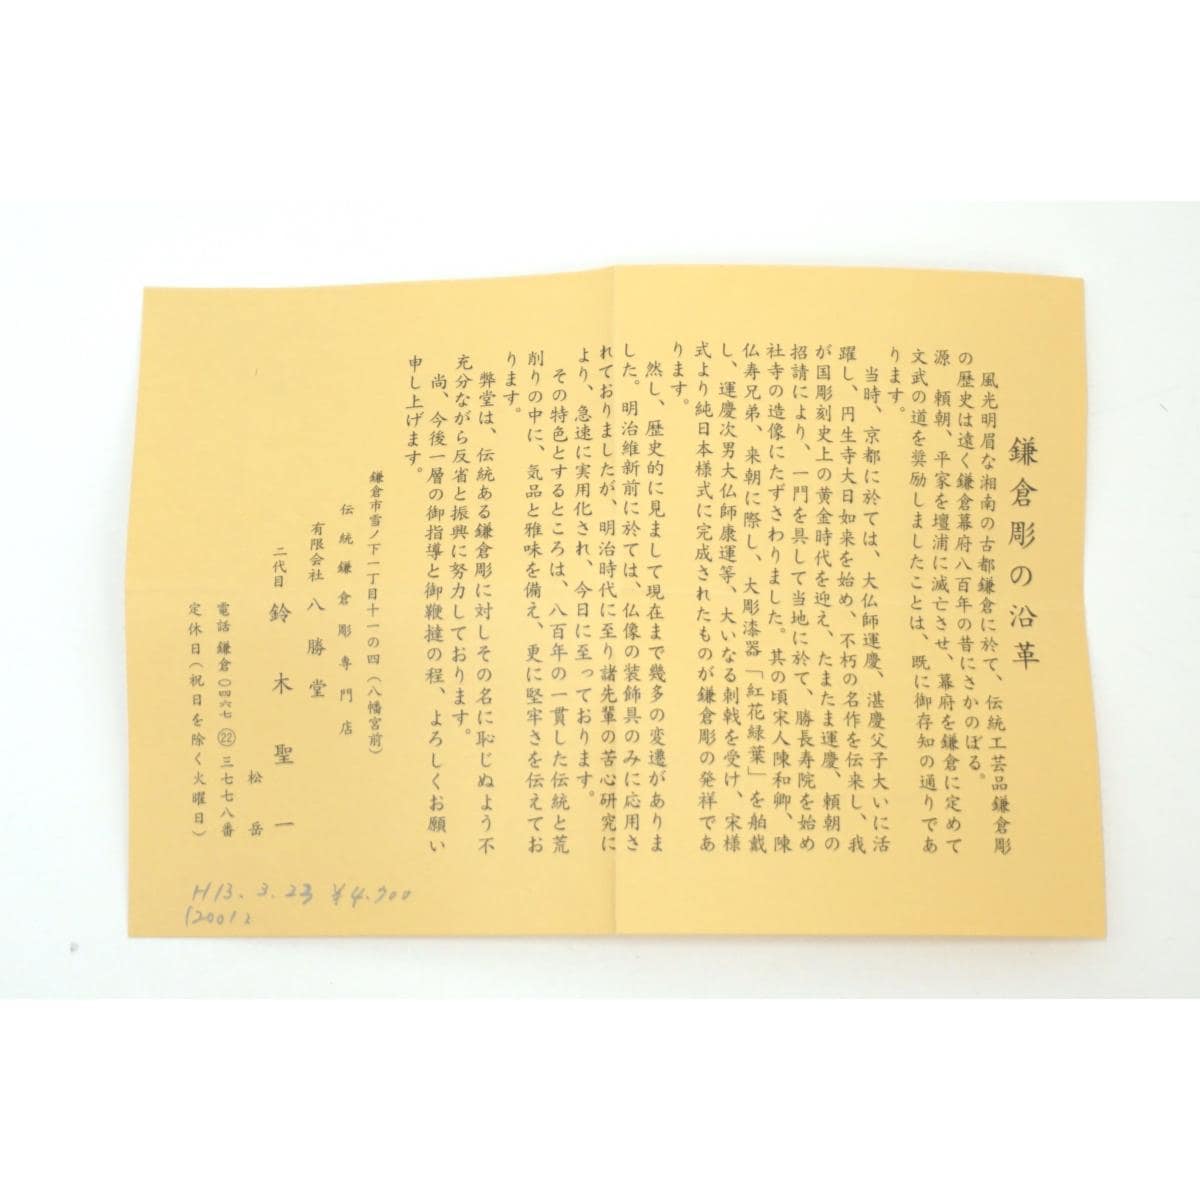 鎌倉彫の沿革
風光明眉な湘南の古都鎌倉に於て、伝統工芸品鎌倉彫
の歴史は遠く鎌倉幕府八百年の昔にさかのぼる。
源　頼朝、平家を壇浦に滅亡させ、幕府を鎌倉に定めて
文武の道を奨励しましたことは、既に御存知の通りであ
ります。
当時、京都に於ては、大仏師運慶、湛慶父子大いに活
躍し、円生寺大日如来を始め、不朽の名作を伝来し、我
が国彫刻史上の黄金時代を迎え、たまたま運慶、頼朝の
招請により、一門を具して当地に於て、勝長寿院を始め
社寺の造像にたずさわりました。其の頃宋人陳和卿、陳
仏寿兄弟、来朝に際し、大彫漆器「紅花緑葉」を舶戴
し、運慶次男大仏師康運等、大いなる刺戟を受け、宋様
式より純日本様式に完成されたものが鎌倉彫の発祥であ
ります。
然し、歴史的に見まして現在まで幾多の変遷がありま
した。明治維新前に於ては、仏像の装飾具のみに応用さ
れておりましたが、明治時代に至り諸先輩の苦心研究に
より、急速に実用化され、今日に至っております。
その特色とするところは、八百年の一貫した伝統と荒
削りの中に、気品と雅味を備え、更に堅牢さを伝えてお
ります。
弊堂は、伝統ある鎌倉彫に対しその名に恥じぬよう不
充分ながら反省と振興に努力しております。
尚、今後一層の御指導と御鞭撻の程、よろしくお願い
申し上げます。
鎌倉市雪ノ下一丁目十一の四（八幡宮前）
伝統鎌倉彫専門店
有限会社 八勝堂
二代目 鈴木聖一
松岳
電話 鎌倉〇四六七 ㉒ 三七七八番
定休日（祝日を除く火曜日）
H13.3.23 ¥4.700
(2001)